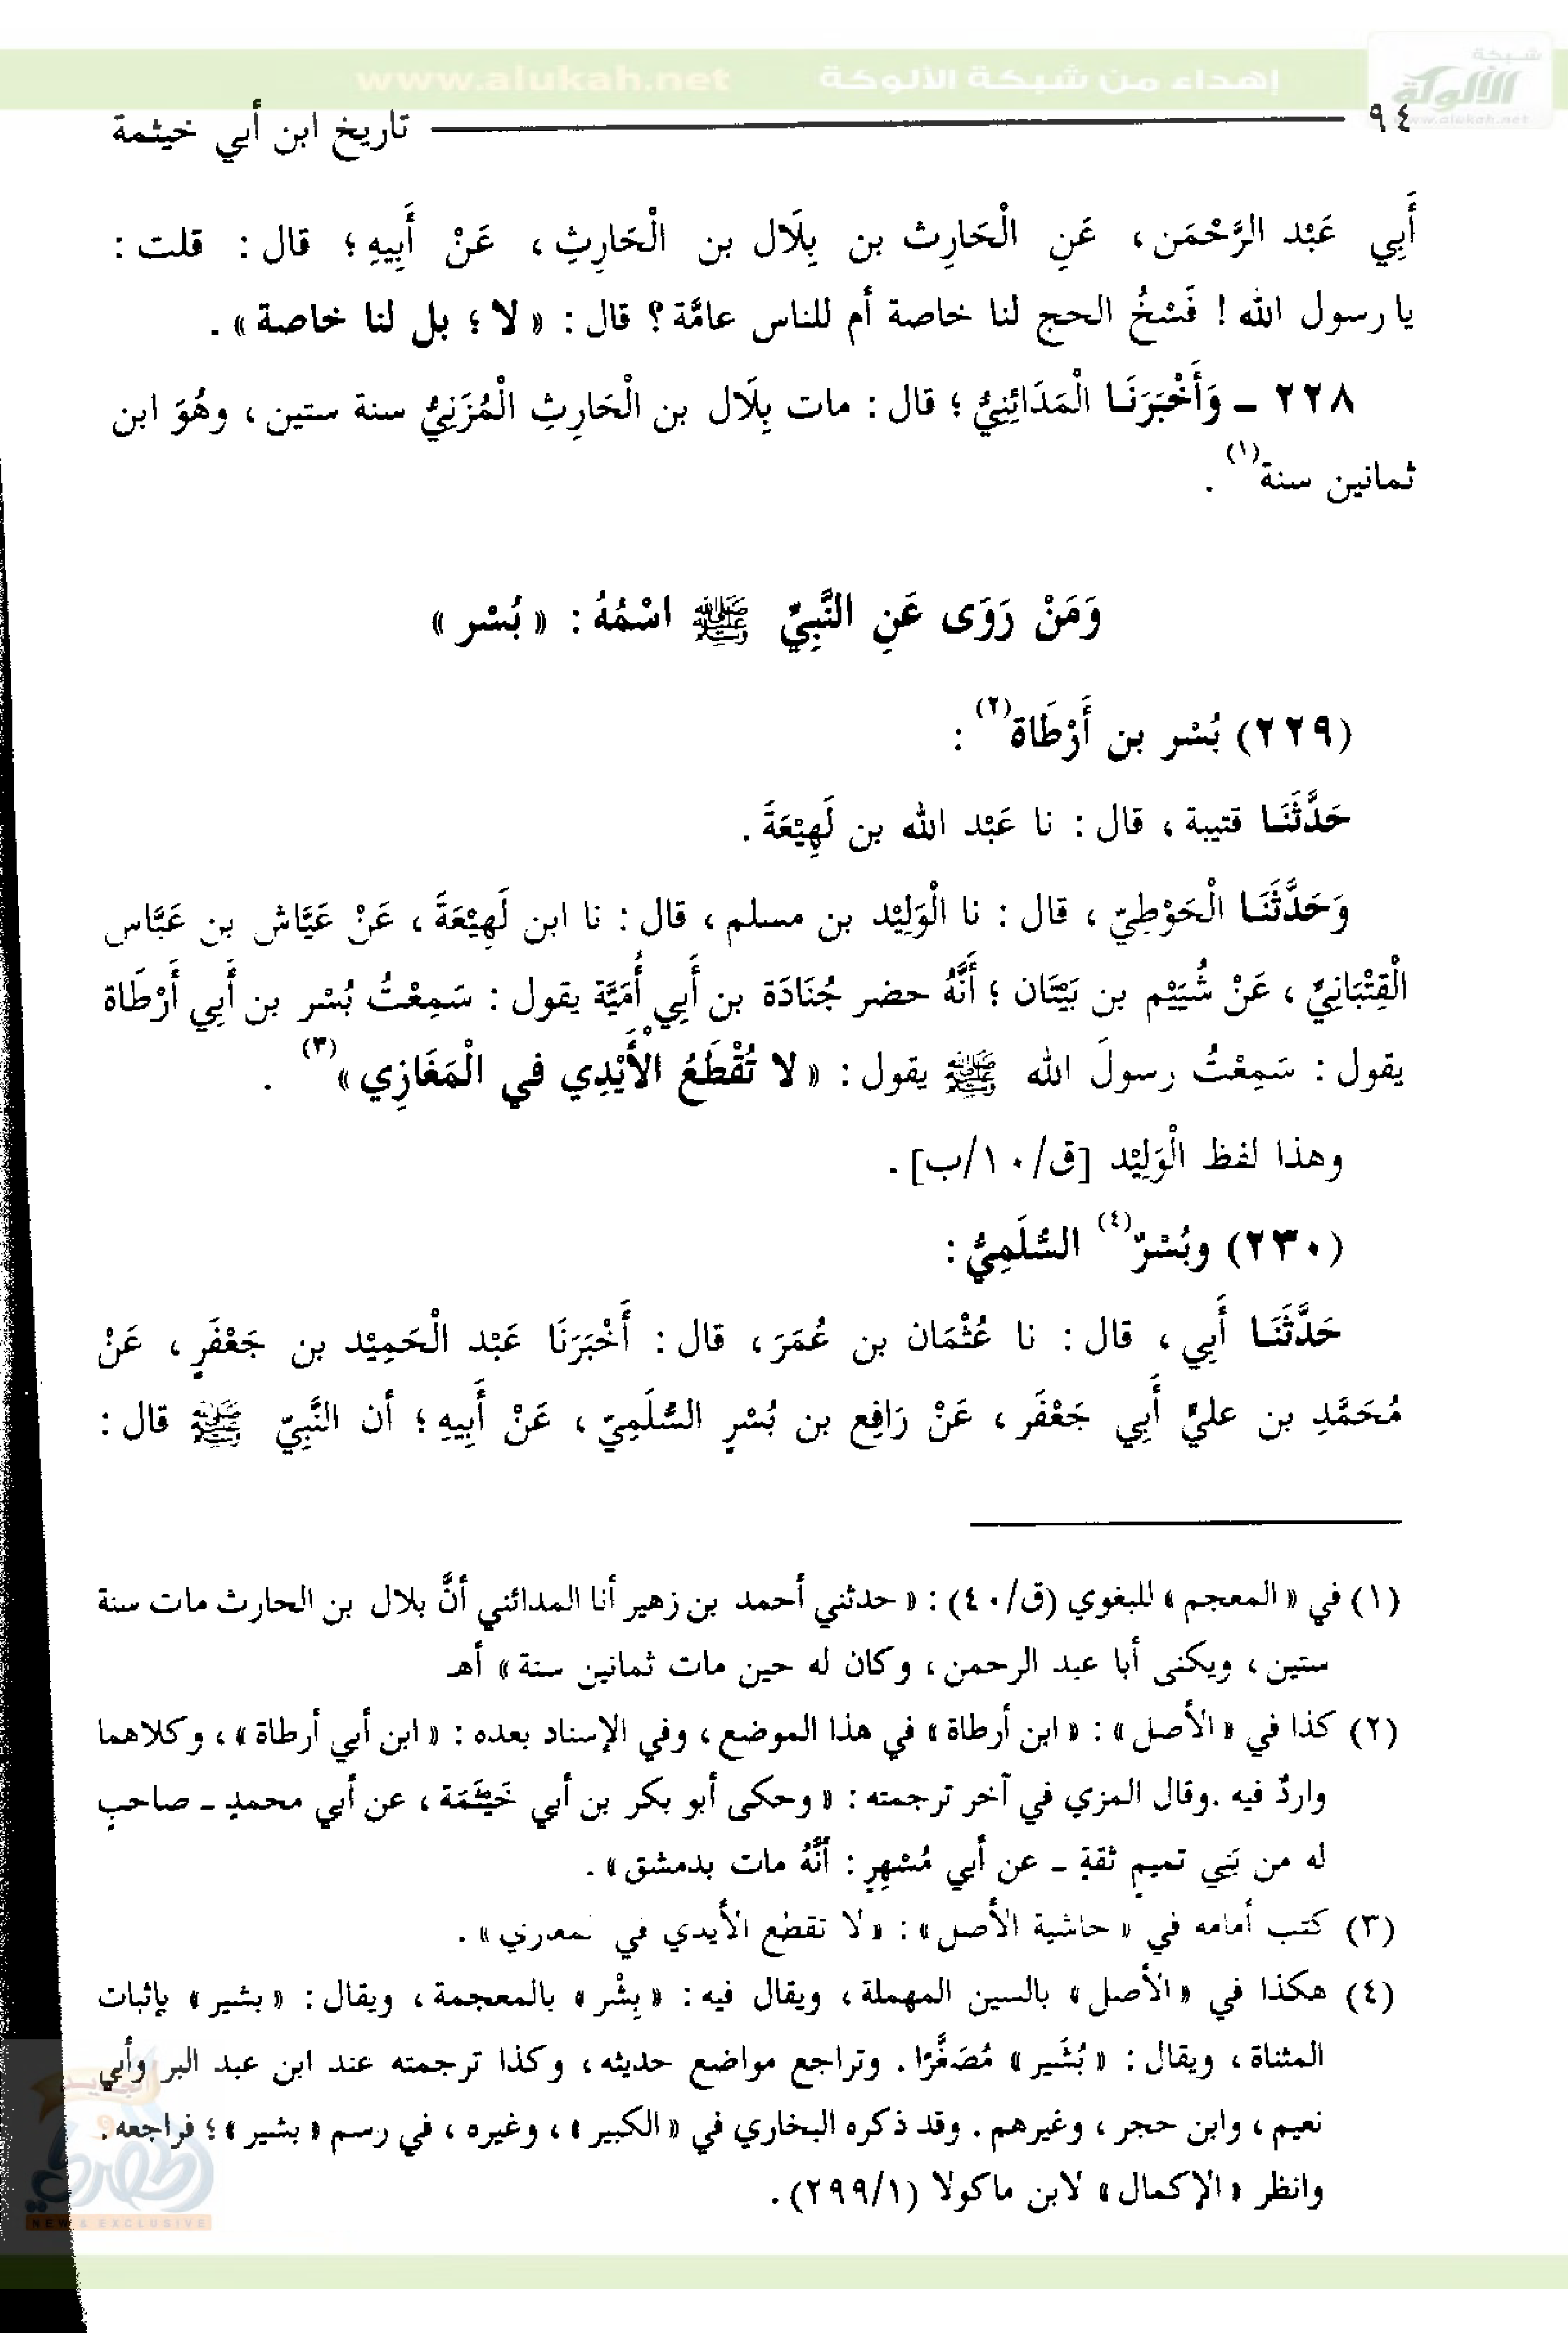 شبكة
الألوكة
www.alukah.net
إهداء من شبكة الألوكة www.alukah.net
٩٤ تاريخ ابن أبي خيثمة
أَبِي عَبْد الرَّحْمَن، عَنِ الْحَارِث بن بِلَال بن الْحَارِثِ، عَنْ أَبِيهِ؛ قال: قلت:
يا رسول الله! فَسْخُ الحج لنا خاصة أم للناس عامَّة؟ قال: «لا؛ بل لنا خاصة».
٢٢٨ ـ وَأَخْبَرَنَا الْمَدَائِنِيُّ؛ قال: مات بِلَال بن الْحَارِثِ الْمُزَنِيُّ سنة ستين، وهُوَ ابن
ثمانين سنة(١).
وَمَنْ رَوَى عَنِ النَّبِيِّ ﷺ اسْمُهُ: «بُسْر»
(٢٢٩) بُسْر بن أَرْطَاة(٢):
حَدَّثَنَا قتيبة، قال: نا عَبْد الله بن لَهِيْعَةَ.
وَحَدَّثَنَا الْحَوْطِيّ، قال: نا الْوَلِيْد بن مسلم، قال: نا ابن لَهِيْعَةَ، عَنْ عَيَّاش بن عَبَّاس
الْقِتْبَانِيِّ، عَنْ شُيَيْم بن بَيْتَان؛ أَنَّهُ حضر جُنَادَة بن أَبِي أُمَيَّة يقول: سَمِعْتُ بُسْر بن أَبِي أَرْطَاة
يقول: سَمِعْتُ رسولَ الله ﷺ يقول: «لا تُقْطَعُ الْأَيْدِي في الْمَغَازِي»(٣).
وهذا لفظ الْوَلِيْد [ق/١٠/ب].
(٢٣٠) وبُسْرٌ(٤) السُّلَمِيُّ:
حَدَّثَنَا أَبِي، قال: نا عُثْمَان بن عُمَرَ، قال: أَخْبَرَنَا عَبْد الْحَمِيْد بن جَعْفَرٍ، عَنْ
مُحَمَّدِ بن عليٍّ أَبِي جَعْفَر، عَنْ رَافِع بن بُسْرٍ السُّلَمِيّ، عَنْ أَبِيهِ؛ أن النَّبِيّ ﷺ قال:
(١) في «المعجم» للبغوي (ق/٤٠): «حدثني أحمد بن زهير أنا المدائني أنَّ بلال بن الحارث مات سنة
ستين، ويكنى أبا عبد الرحمن، وكان له حين مات ثمانين سنة» أهـ
(٢) كذا في «الأصل»: «ابن أرطاة» في هذا الموضع، وفي الإسناد بعده: «ابن أبي أرطاة»، وكلاهما
واردٌ فيه. وقال المزي في آخر ترجمته: «وحكى أبو بكر بن أبي خَيْثَمَة، عن أبي محمدٍ ـ صاحبٍ
له من بَنِي تميمٍ ثقةٍ ـ عن أبي مُسْهِرٍ: أنَّهُ مات بدمشق».
(٣) كتب أمامه في «حاشية الأصل»: «لا تقطع الأيدي في».
(٤) هكذا في «الأصل» بالسين المهملة، ويقال فيه: «بِشْر» بالمعجمة، ويقال: «بشير» بإثبات
المثناة، ويقال: «بُشَير» مُصَغَّرًا. وتراجع مواضع حديثه، وكذا ترجمته عند ابن عبد البر وأبي
نعيم، وابن حجر، وغيرهم. وقد ذكره البخاري في «الكبير»، وغيره، في رسم «بشير»؛ فراجعه.
وانظر «الإكمال» لابن ماكولا (٢٩٩/١).
NEW & EXCLUSIVE